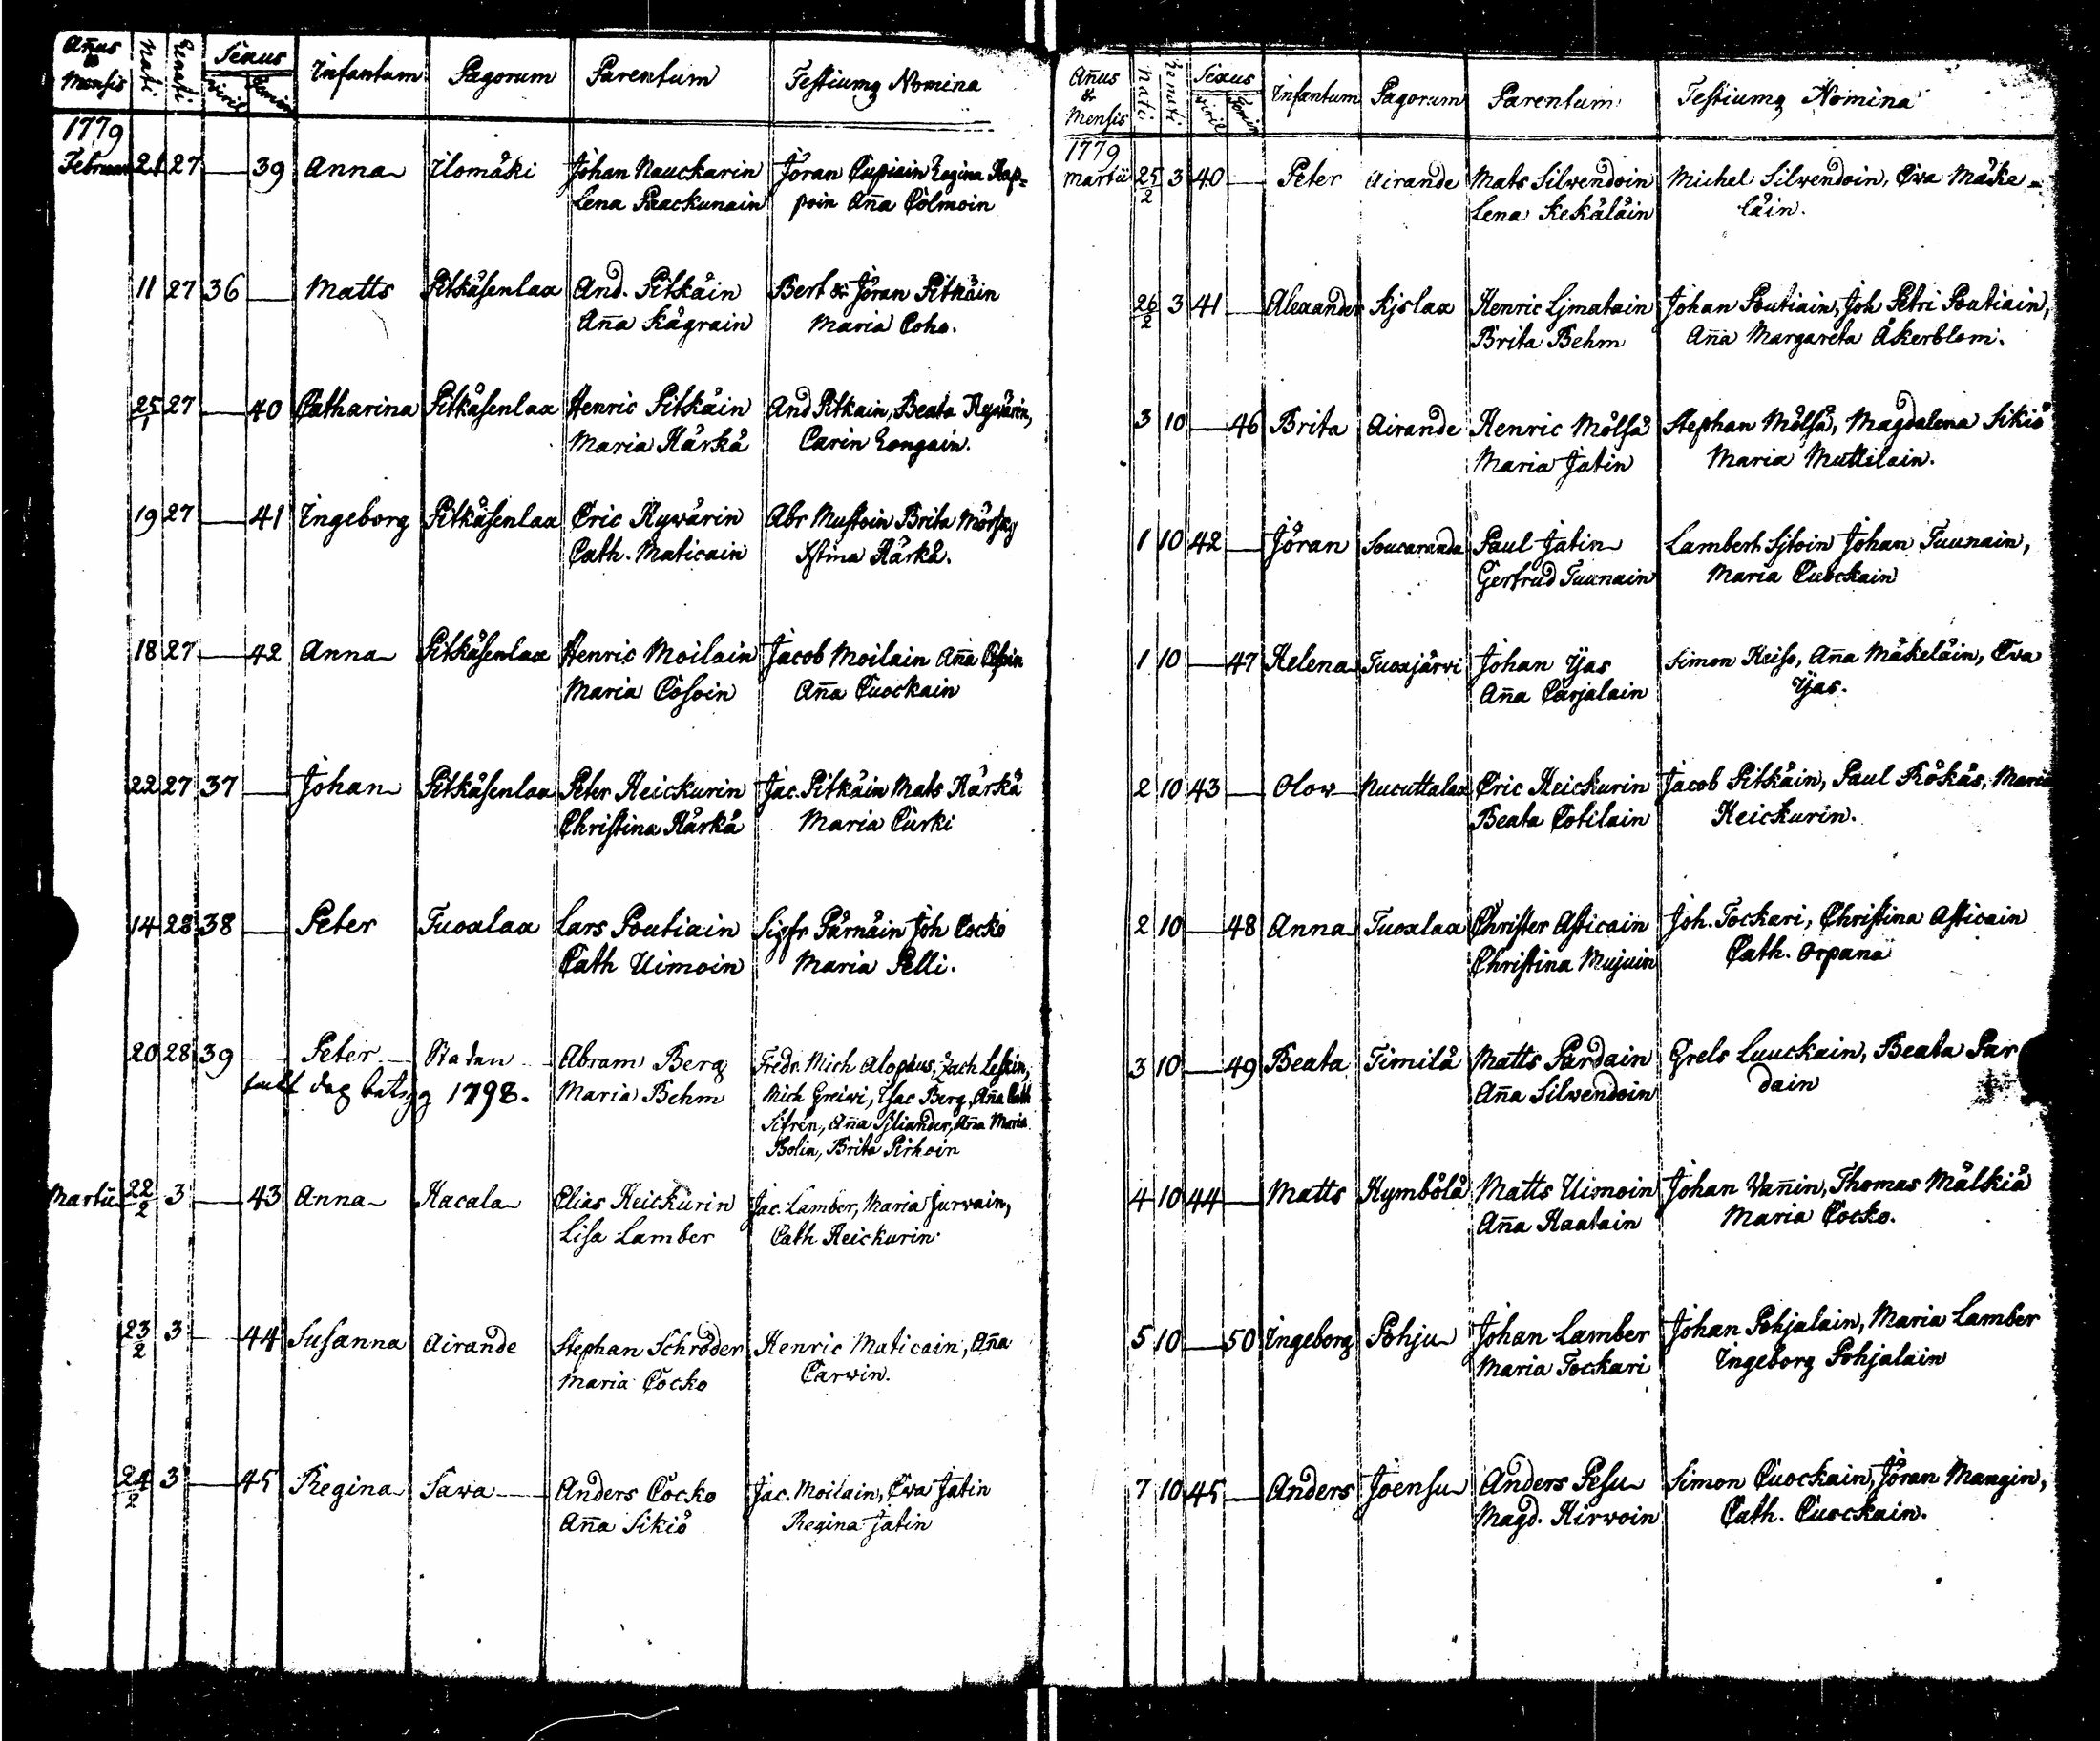 Añus & Mensis Nati Renati Sexus Viril Femin Infantum Pagorum Parentum Testiumq Nomina
1779
Februar 21 27 — 39 Anna Ilomäki Johan Nauckarin Jöran Cupiain Regina Kap=
Lena Paackunain poin Aña Colmoin
11 27 36 — Matts Pitkäsenlax And. Pitkäin Bert & Jöran Pitkäin
Aña Kägrain Maria Coho.
25/1 27 — 40 Catharina Pitkäsenlax Henric Pitkäin And Pitkain, Beata Hyvärin,
Maria Härkä Carin Rongain.
19 27 — 41 Ingeborg Pitkäsenlax Eric Hyvärin Abr Mustoin Brita Mörsky
Cath. Maticain Stina Härkä.
18 27 — 42 Anna Pitkäsenlax Henric Moilain Jacob Moilain Aña
Maria Cosoin Aña Cuockain
22 27 37 — Johan Pitkäsenlax Peter Heickurin Jac. Pitkäin Mats Härkä
Christina Härkä Maria Curki
14 28 38 — Peter Tuoxlax Lars Poutiain Sigfr Pärnäin Joh Cocko
Cath Uimoin Maria Pelli.
20 28 39 — Peter Staden Abram Berg Fredr. Mich Alopäus, Zach Leskin,
dag 1798. Maria Behm Mich Greivi, Isac Berg, Aña Cath
Sitrén, Aña Sjliander, Aña Maria
Bolin, Brita Pirhoin
Martii 22/2 3 — 43 Anna Hacala Elias Heickurin Jac. Lamber, Maria Jurvain,
Lisa Lamber Cath Heickurin.
23/2 3 — 44 Susanna Airande Stephan Schröder Henric Maticain, Aña
Maria Cocko Carwin.
24/2 3 — 45 Regina Sawa Anders Cocko Jac. Moilain, Ewa Jatin
Aña Sikiö Regina Jatin
Añus & Mensis Nati Renati Sexus Viril Femin Infantum Pagorum Parentum Testiumq Nomina
1779
Martii 25/2 3 40 — Peter Airande Mats Silvendoin Michel Silvendoin, Ewa Mäke=
Lena Kekäläin läin.
26/2 3 41 — Alexander Kjslax Henric Ljmatain Johan Poutiain, Joh Petri Poutiain,
Brita Behm Aña Margareta Åkerblom.
3 10 — 46 Brita Airande Henric Mölsä Stephan Mölsä, Magdalena Sikiö
Maria Jatin Maria Muttilain.
1 10 42 — Jöran Soucaranda Paul Jatin Lambert Sjtoin Johan Tuunain,
Gertrud Tuunain Maria Cuockain
1 10 — 47 Helena Tuoxjärvi Johan Yjas Simon Keiso, Aña Mäkeläin, Ewa
Aña Carjalain Yjas.
2 10 43 — Olow Nucuttalax Eric Heickurin Jacob Pitkäin, Paul Rökäs, Maria
Beata Cotilain Heickurin.
2 10 — 48 Anna Tuoxlax Christer Asticain Joh. Tockari, Christina Asticain
Christina Mujuin Cath. Orpana
3 10 — 49 Beata Timilä Matts Pardain Grels Luuckain, Beata Par
Aña Silwendoin dain
4 10 44 — Matts Kymbölä Matts Uimoin Johan Vañin, Thomas Mälkiä
Aña Haatain Maria Cocko.
5 10 — 50 Ingeborg Pohju Johan Lamber Johan Pohjalain, Maria Lamber
Maria Tockari Ingeborg Pohjalain
7 10 45 — Anders Joensu Anders Pesu Simon Cuockain, Jöran Mangin,
Magd. Hirwoin Cath. Cuockain.